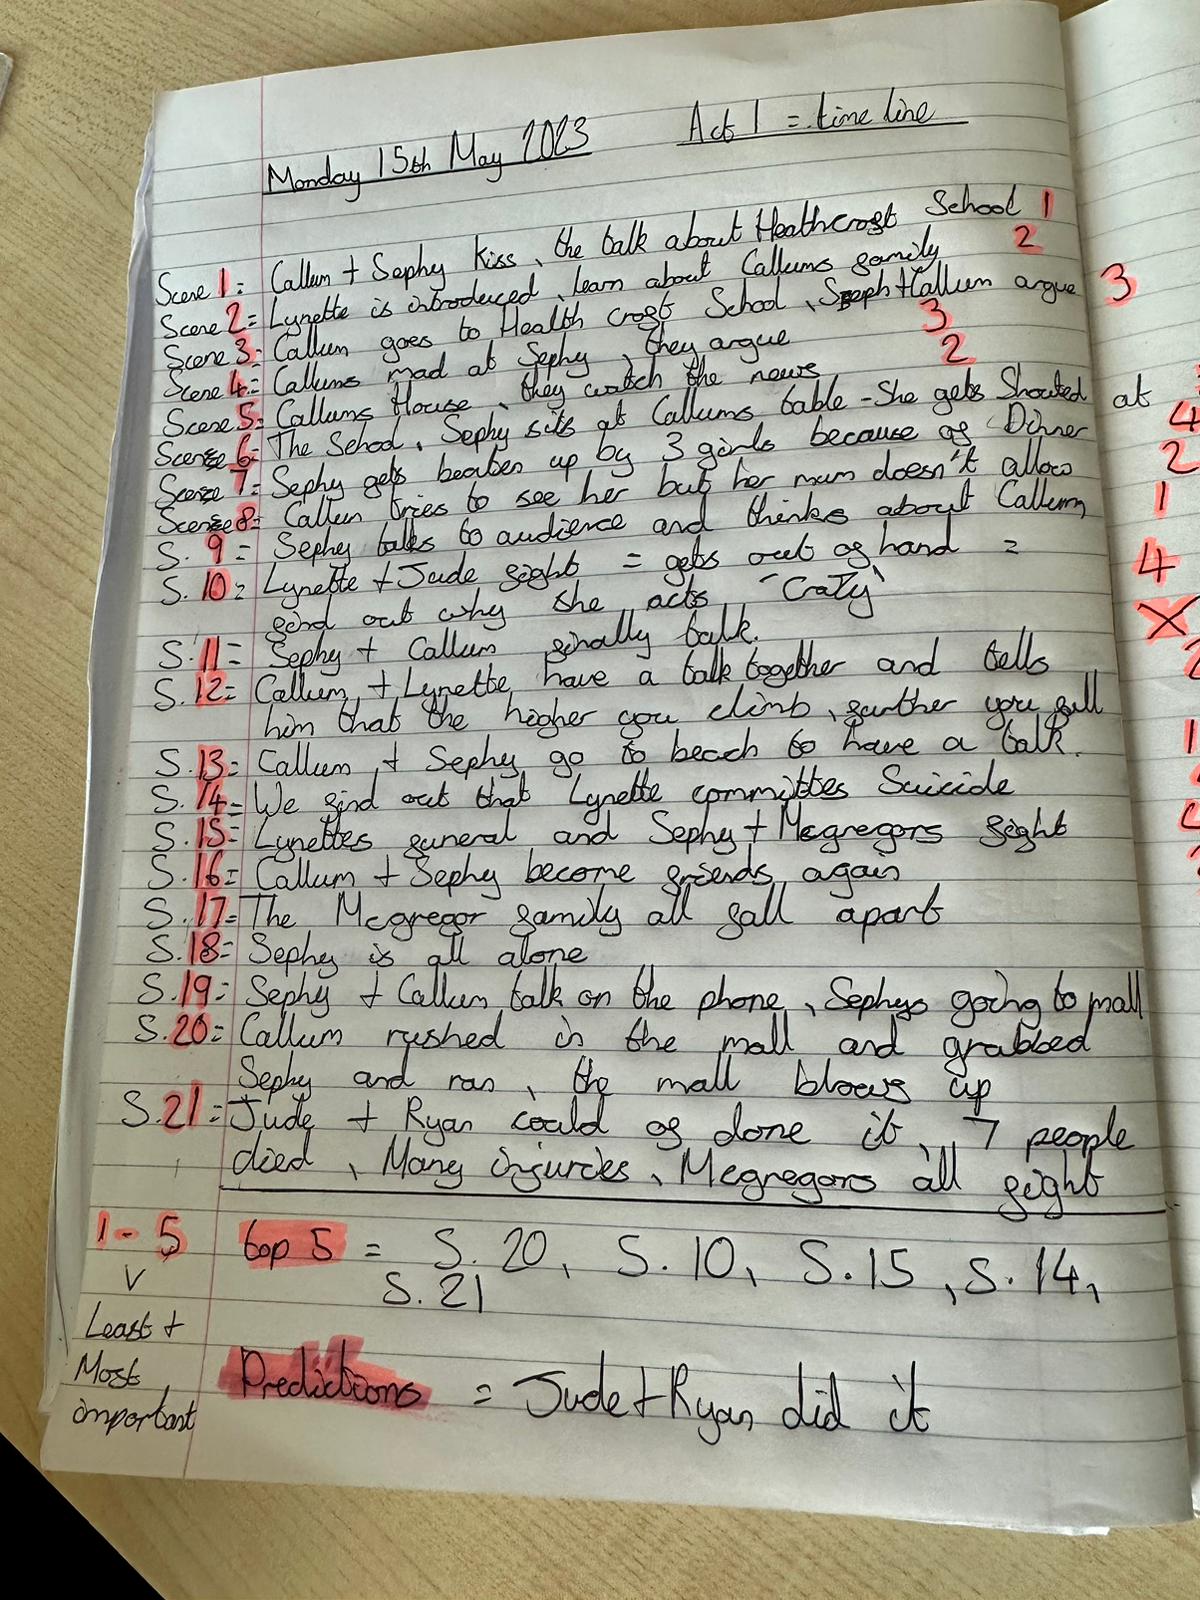 Monday 15th May 2023 Act 1 = time line
Scene 1= Callum + Sephy kiss, the talk about Heathcroft School 1
Scene 2= Lynette is introduced, learn about Callums family 2
Scene 3= Callum goes to Health croft School, Seph+Callum argue 3
Scene 4= Callums mad at Sephy, they argue 3
Scene 5= Callums House, they watch the news 2
Scene 6= The School, Sephy sits at Callums table - She gets Shouted at
Scene 7= Sephy gets beaten up by 3 girls because of Dinner 4
Scene 8= Callum tries to see her but her mum doesn't allow 2
S. 9 = Sephy talks to audience and thinks about Callum 1
S. 10= Lynette + Jude fight = gets out of hand = 4
find out why she acts "Crazy" X
S. 11= Sephy + Callum finally talk.
S. 12= Callum + Lynette have a talk together and tells
him that the higher you climb, further you fall
S.13= Callum + Sephy go to beach to have a talk. 1
S. 14= We find out that Lynette committes Suicide
S. 15= Lynettes funeral and Sephy + Mcgregors fight
S. 16= Callum + Sephy become friends again
S. 17= The Mcgregor family all fall apart
S. 18= Sephy is all alone
S. 19= Sephy + Callum talk on the phone, Sephys going to mall
S. 20= Callum rushed in the mall and grabbed
Sephy and ran, the mall blows up
S. 21= Jude + Ryan could of done it, 7 people
died, Many injuries, Mcgregors all fight
1 - 5 top 5 = S. 20, S. 10, S. 15, S. 14,
S. 21
Least +
Most
important
Predictions = Jude + Ryan did it